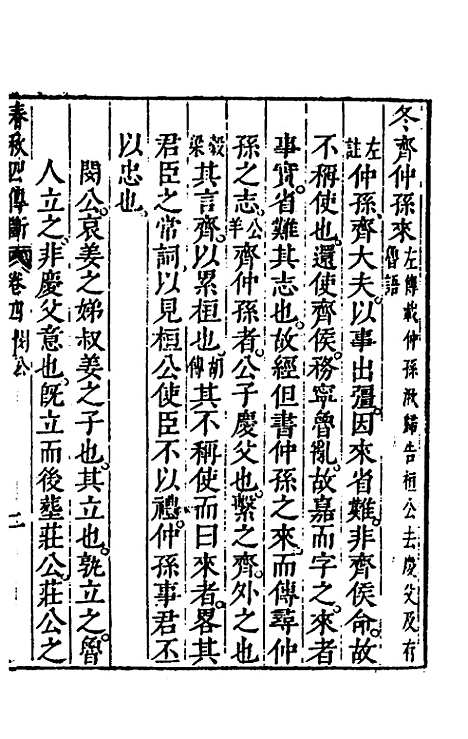 冬齊仲孫來左傳載仲孫湫歸告桓公去慶父及存魯語
左註仲孫齊大夫以事出彊因來省難非齊侯命故
不稱使也還使齊侯務寧魯亂故嘉而字之來者
事實省難其志也故經但書仲孫之來而傳尋仲
孫之志公羊齊仲孫者公子慶父也繫之齊外之也
穀梁其言齊以累桓也胡傳其不稱使而曰來者畧其
君臣之常詞以見桓公使臣不以禮仲孫事君不
以忠也
閔公哀姜之娣叔姜之子也其立也孰立之魯
人立之非慶父意也旣立而後塟莊公莊公之
春秋四傳斷 卷四 閔公 二